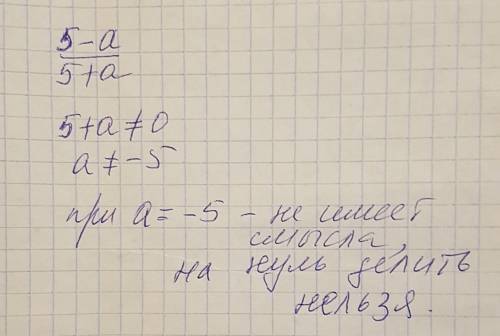 5-a
5+a
5+a≠0
a≠-5
при a=-5 - не имеет
смысла,
на нуль делить
нельзя.